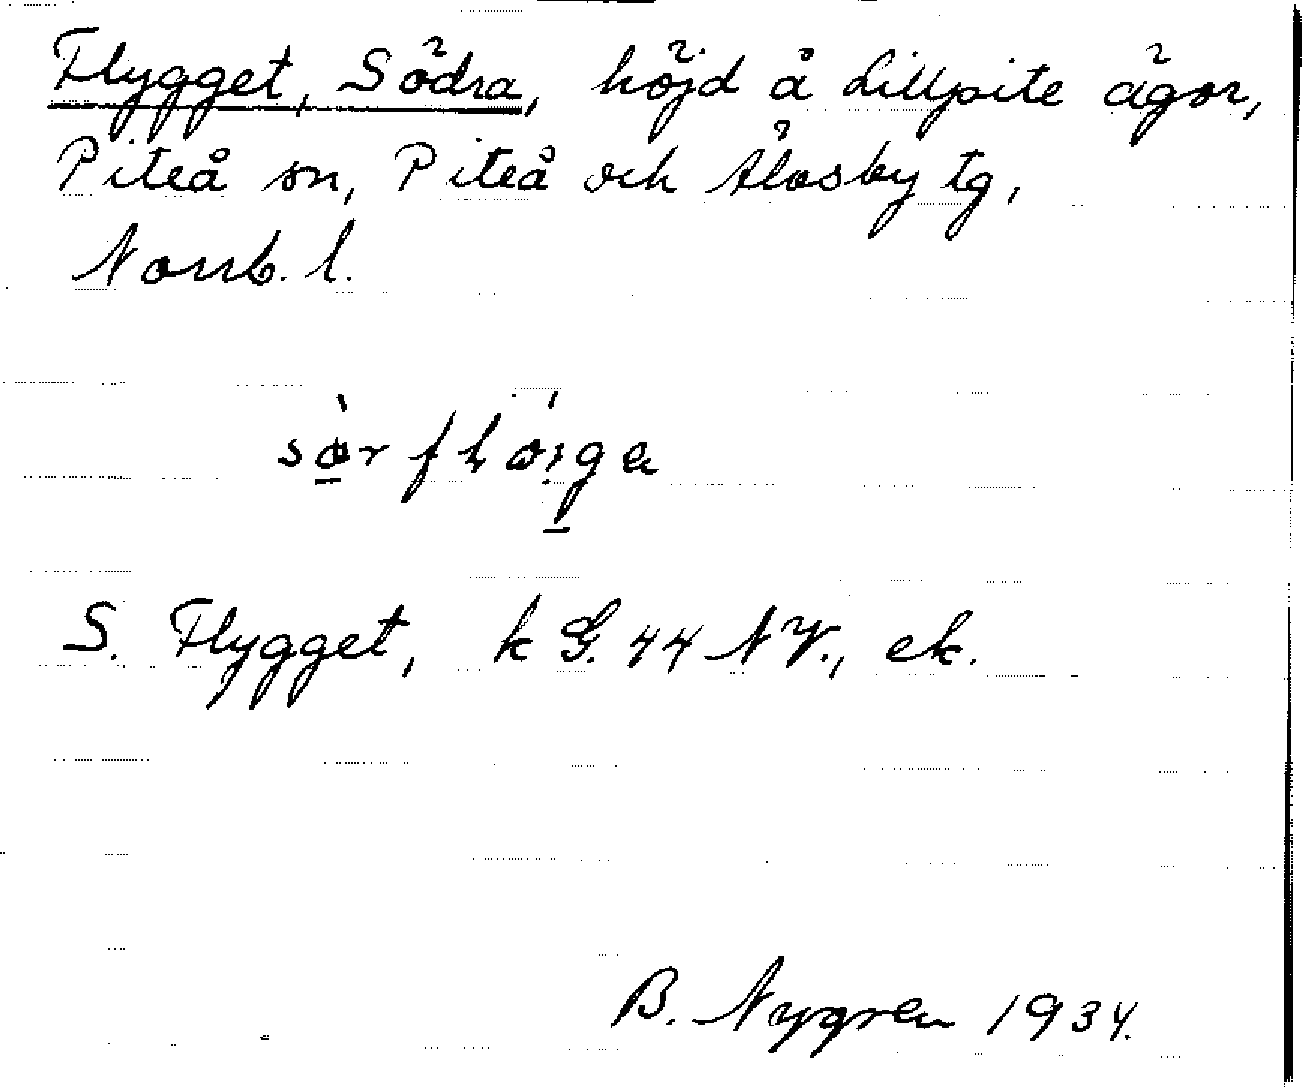 Flygget, Södra, höjd å Lillpite ägor,
Piteå sn, Piteå och Älvsby tg,
Norrb. l.
S. Flygget, k G. 44 NV., ek.
B. Nygren 1934.